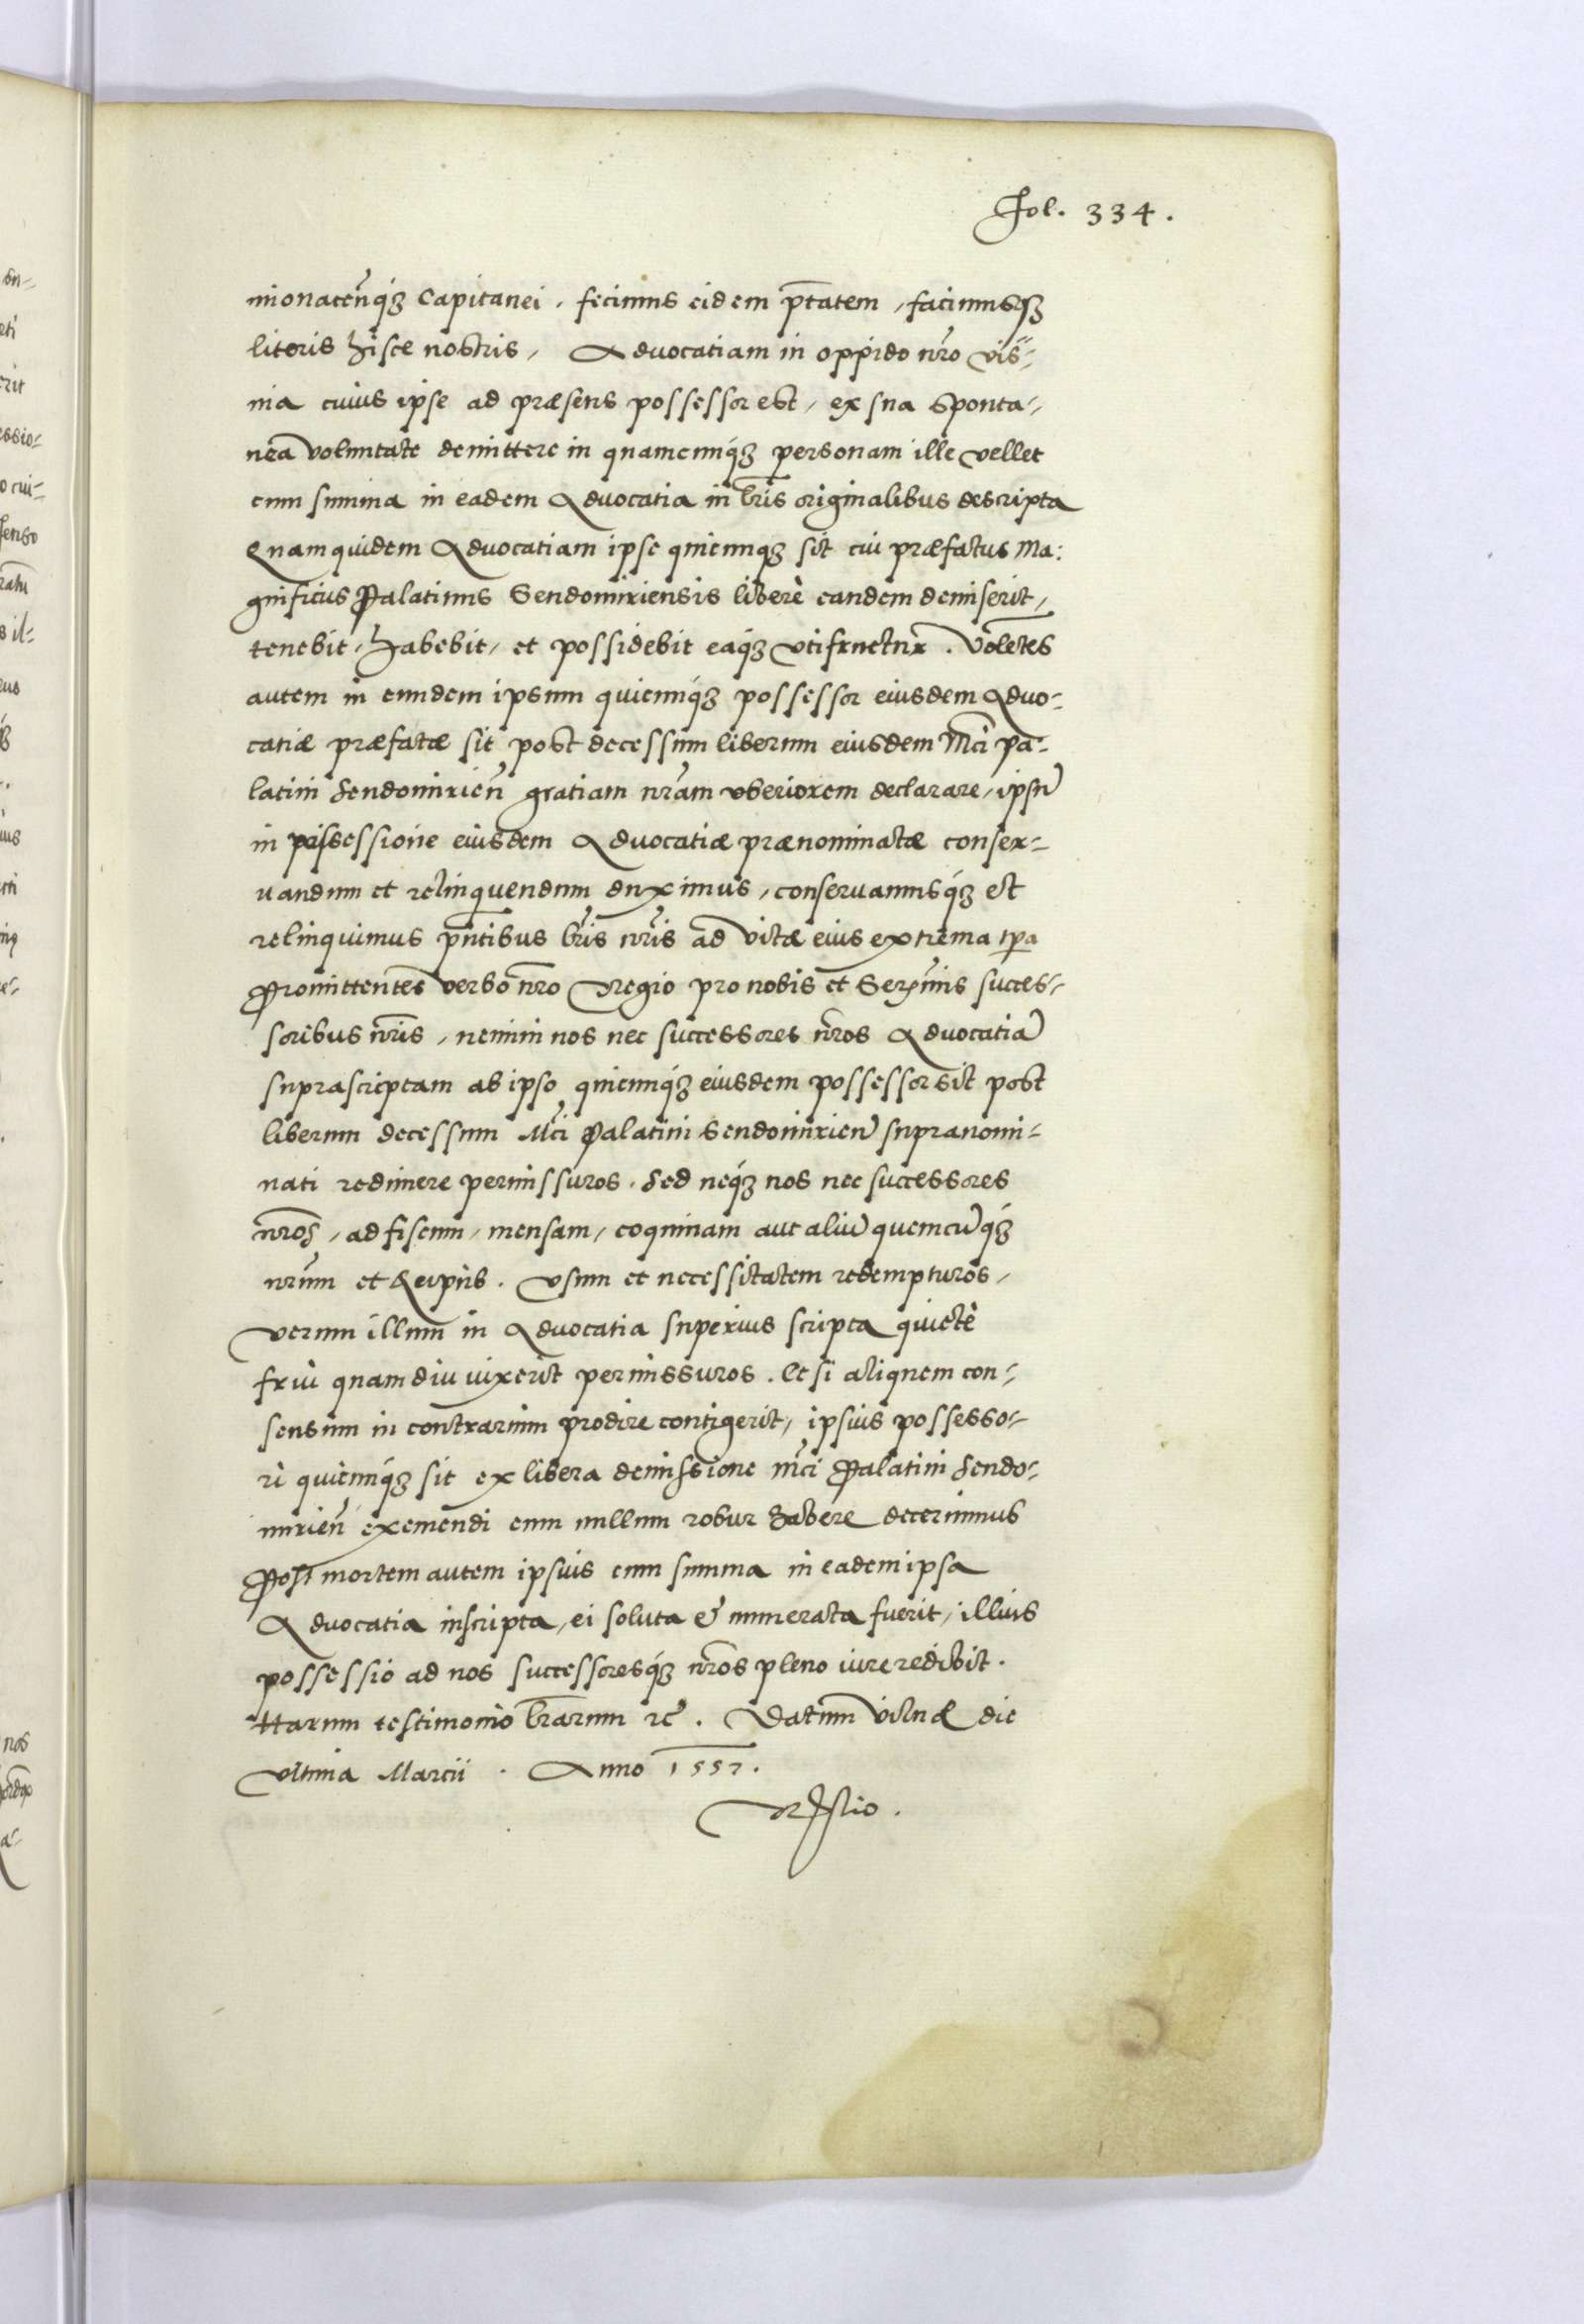 Fol. 334.
mionacen̄q́ꝫ Capitanei, fecimus eidem p̄tatem, facimusq́ꝫ
literis hisce nostris, Advocatiam in oppido nr̄o Vis-
nia cuius ipse ad præsens possessor est, ex sua sponta-
nea voluntate demittere in quamcunq́ꝫ personam ille vellet
cum summa in eadem Advocatia in lr̄is originalibus descripta
Quamquidem Advocatiam ipse quicunqꝫ sit cui præfatus Ma:
gnificus Palatinus Sendomiriensis liberè eandem demiserit,
tenebit, habebit, et possidebit eaq́ꝫ utifruetur. Volētes
autem in eundem ipsum quicunq́ꝫ possessor eiusdem Advo-
catiæ præfatæ sit post decessum liberum eiusdem Mc̄i Pa-
latini Sendomirien̄ gratiam nr̄am uberiorem declarare, ipsū
in possessione eiusdem Advocatiæ prænominatæ conser-
uandum et relinquendum duximus, conservamusq́ꝫ et
relinquimus pn̄tibus lr̄is nr̄is ad vitæ eius extrema tp̄a
Promittentes verbo nr̄o Regio pro nobis et Serₘīs succes-
soribus nr̄is, nemini nos nec successores nr̄os Advocatiā
suprascriptam ab ipso quicunq́ꝫ eiusdem possessor sit post
liberum decessum Mc̄i Palatini Sendomirien̄ supranomi-
nati redimere permissuros. Sed neq́ꝫ nos nec successores
nr̄os, ad fiscum, mensam, coquinam aut aliū quemcūq́ꝫ
nr̄um et Reipub. usum et necessitatem redempturos,
verum illum in Advocatia superius scripta quietè
frui quamdiu vixerit permissuros. Et si aliquem con-
sensum in contrarium prodire contigerit, ipsius possesso-
ri quicunq́ꝫ sit ex libera demissione Mc̄i Palatini Sendo-
mirien̄ exemendi eum nullum robur habere decernimus
Post mortem autem ipsius cum summa in eadem ipsa
Advocatia inscripta, ei soluta & numerata fuerit, illius
possessio ad nos successoresq́ꝫ nr̄os pleno iure redibit.
Harum testimonio lr̄arum ꝛc̄. Datum Vilnæ die
Ultima Marcii. Anno 1557.